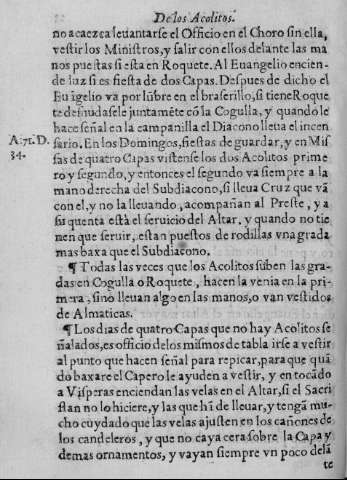 De los Acolitos.
no acaezca leuantarse el Officio en el Choro sin ella,
vestir los Ministros, y salir con ellos delante las ma
nos puestas si esta en Roquete. Al Euangelio encien-
de luz si es fiesta de dos Capas. Despues de dicho el
Euāgelio va por lūbre en el braserillo, si tiene Roque
te desnudasele juntamēte cō la Cogulla, y quando le
hace señal en la campanilla el Diacono lleua el incen
sario. En los Domingos, fiestas de guardar, y en Mis
A. 71. D.
34.
sas de quatro Capas vistense los dos Acolitos prime
ro y segundo, y entonces el segundo va siempre a la
mano derecha del Subdiacono, si lleua Cruz que vā
con el, y no la lleuando, acompañan al Preste, y a
su quenta està el seruicio del Altar, y quando no tie
nen que seruir, estan puestos de rodillas vna grada
mas baxa que el Subdiacono.
¶ Todas las veces que los Acolitos suben las gra-
das en Cogulla o Roquete, hacen la venia en la pri-
mera, sino lleuan algo en las manos, o van vestidos
de Almaticas.
¶ Los dias de quatro Capas que no hay Acolitos se
ñalados, es officio de los mismos de tabla irse a vestir
al punto que hacen señal para repicar, para que quā
do baxare el Capero le ayuden a vestir, y en tocādo
a Visperas enciendan las velas en el Altar, si el Sacri
stan no lo hiciere, y las que hā de lleuar, y tengā mu-
cho cuydado que las velas ajusten en los cañones de
los candeleros, y que no caya cera sobre la Capa y
demas ornamentos, y vayan siempre vn poco delā
te